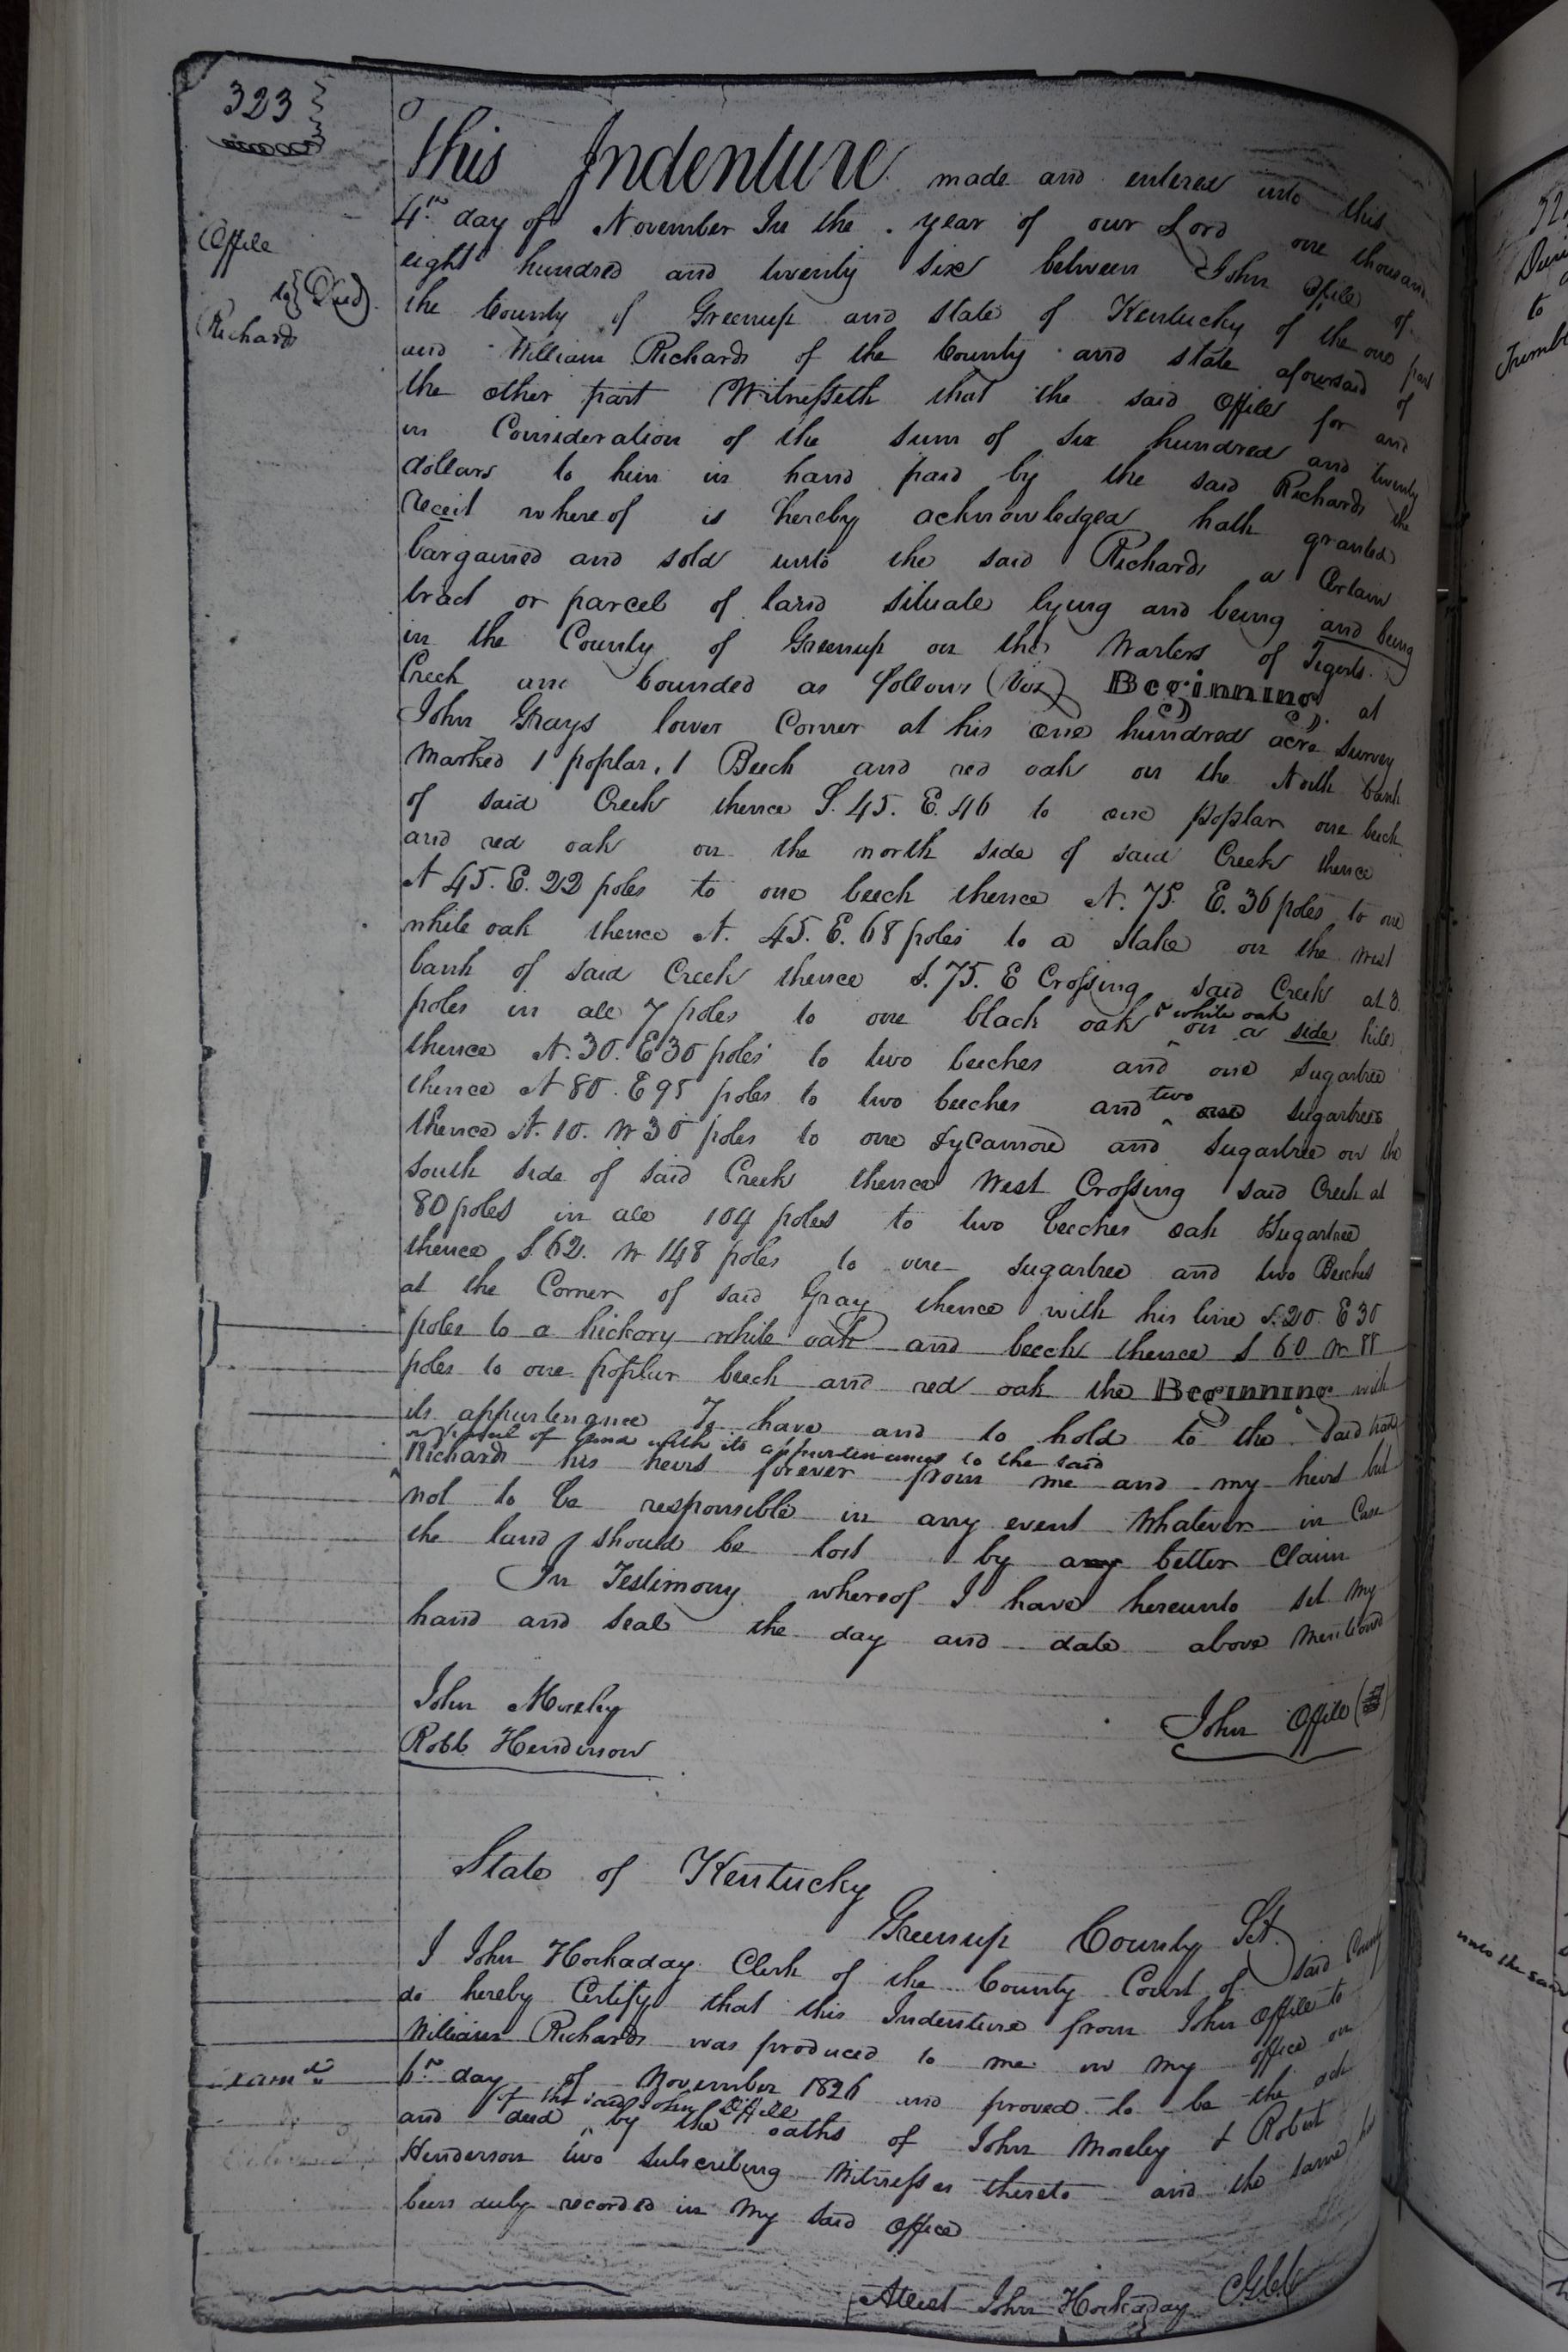 323
Offile
to } Deed
Richards
This Indenture made and entered into this
4th day of November In the year of our Lord one thousand
eight hundred and twenty six between John Offile of
the County of Greenup and state of Kentucky of the one part
and William Richards of the County and state aforsaid of
the other part Witnesseth that the said Offile for and
in Consideration of the sum of six hundred and twenty
dollars to him in hand paid by the said Richards the
receit whereof is hereby acknowledged hath granted
bargained and sold unto the said Richards a Certain
tract or parcel of land situate lying and being and being
in the County of Greenup on the Warters of Tigerts
Creek and bounded as follows (Viz) Beginning at
John Grays lower Corner at his one hundred acre survey
Marked 1 poplar, 1 Beech and red oak on the North bank
of said Creek thence S. 45. E. 46 to one poplar one beech
and red oak on the north side of said Creek thence
N 45. E. 22 poles to one beech thence N. 75. E. 36 poles to one
white oak thence N. 45. E. 68 poles to a stake on the west
bank of said Creek thence S. 75. E Crossing said Creek at 3
poles in all 7 poles to one black oak & white oak on a side hill
thence N. 30. E 30 poles to two beeches and one sugartree
thence N 80. E 95 poles to two beeches and two one sugartrees
thence N. 10. W 30 poles to one sycamore and sugartree on the
south side of said Creek thence West Crossing said Creek at
80 poles in all 104 poles to two beeches oak sugartree
thence S. 62. W 148 poles to one sugartree and two Beeches
at the Corner of said Gray thence with his line S. 20. E 30
poles to a hickory white oak and beech thence S 60 W 88
poles to one poplar beech and red oak the Beginning with
its appurtenance To have and to hold to the said tract
or parcel of land with its appurtenances to the said
Richards his heirs forever from me and my heirs but
not to be responsible in any event Whatever in Case
the land should be lost by any better Claim
In Testimony whereof I have hereunto set my
hand and seal the day and date above Mentiond
John Morley
Robt. Henderson
John Offile
State of Kentucky
Greenup County Sct.
I John Hockaday Clerk of the County Court of said County
do hereby Certify that this Indenture from John Offile to
William Richards was produced to me in my office on
6th day of November 1826 and proved to be the act
of the said John Offile
and deed by the oaths of John Morley & Robert
Henderson two subscribing Witnesses thereto and the same has
been duly recorded in my said office
Attest John Hockaday
to
unto the said